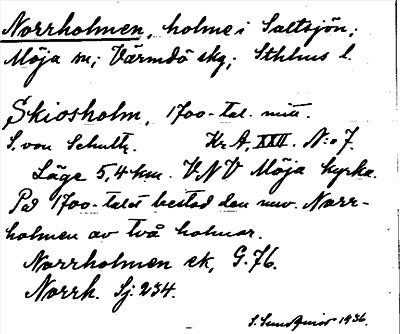 Norrholmen, holme i Saltsjön;
Möja sn; Värmdö skg; Sthlms l.
Skiosholm, 1700-tal. mitt.
S. von Schultz. Kr A, XXII. N:o 7.
Läge 5,4 km. VNV Möja kyrka.
På 1700-talet bestod den nuv. Norr-
holmen av två holmar.
Norrholmen ek, G.76.
Norrh. Sj: 234.
S. Sundqvist 1936.